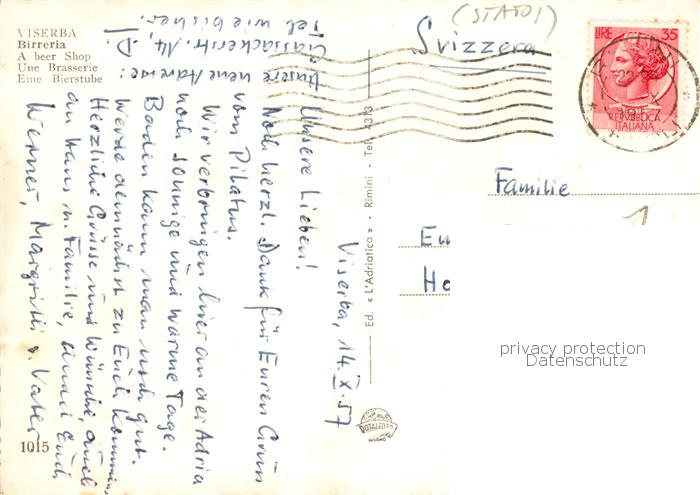 VISERBA
Birreria
A beer Shop
Une Brasserie
Eine Bierstube
Unsere neue Adresse:
Gassackerstr. 14, D.
Tel. wie bisher.
Viserba, 14. X. 57
Unsere Lieben!
Noch herzl. Dank für Euren Gruss
vom Pilatus.
Wir verbringen hier an der Adria
noch sonnige und warme Tage.
Baden kann man noch gut.
Werde demnächst zu Euch kommen.
Herzliche Grüsse und Wünsche, auch
an Hans u. Familie, sendet Euch
Werner, Margrith u. Vater
1015
Ed. « L'Adriatica » - Rimini - Tel. 4313
ROTALFOTO
MILANO
(STADT)
Svizzera
LIRE 35
REPVBBLICA
ITALIANA
Familie
Eu
He
privacy protection
Datenschutz